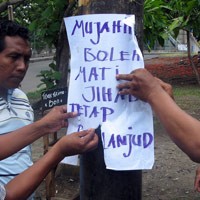 MUJAHID
BOLEH
MATI
JIHAD
TETAP
LANJUD